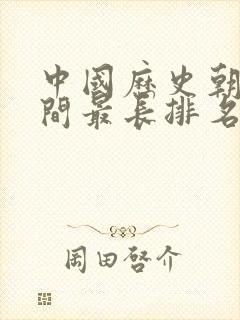 中國歷史朝
間最長排名
岡田啓介